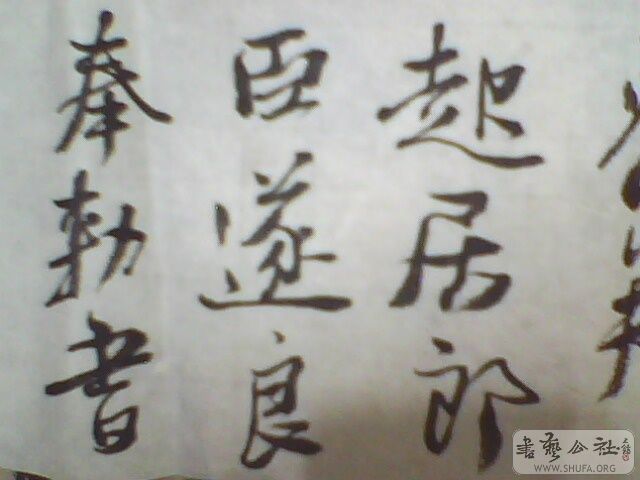 起居郎
臣遂良
奉勅書
書艺公社
WWW.SHUFA.ORG